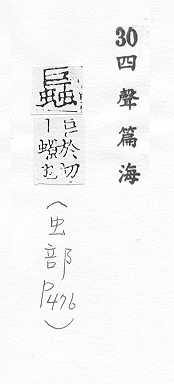 30 四聲篇海
巨於切
(虫部
P476)